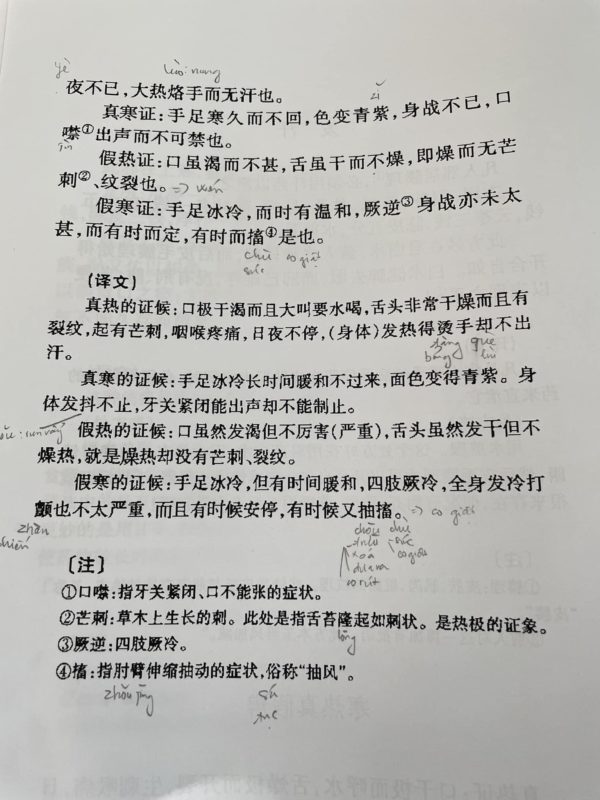 yè
夜不已,大热烙手而无汗也。
zǐ
真寒证:手足寒久而不回,色变青紫,身战不已,口
噤①出声而不可禁也。
jìn
假热证:口虽渴而不甚,舌虽干而不燥,即燥而无芒
刺②、纹裂也。
假寒证:手足冰冷,而时有温和,厥逆③身战亦未太
甚,而有时而定,有时而搐④是也。
chù co giật
súc
〔译文〕
真热的证候:口极于渴而且大叫要水喝,舌头非常干燥而且有
裂纹,起有芒刺,咽喉疼痛,日夜不停,(身体)发热得烫手却不出
汗。
tàng què
真寒的证候:手足冰冷长时间暖和不过来,面色变得青紫。身
体发抖不止,牙关紧闭能出声却不能制止。
假热的证候:口虽然发渴但不厉害(严重),舌头虽然发干但不
燥热,就是燥热却没有芒刺、裂纹。
假寒的证候:手足冰冷,但有时间暖和,四肢厥冷,全身发冷打
颤也不太严重,而且有时候安停,有时候又抽搐。 => co giật
zhàn
chiến
chōu chù
súc
co giật
co rút
〔注〕
①口噤:指牙关紧闭、口不能张的症状。
②芒刺:草木上生长的刺。此处是指舌苔隆起如刺状。是热极的证象。
lóng
③厥逆:四肢厥冷。
④搐:指肘臂伸缩抽动的症状,俗称“抽风”。
sú
tục